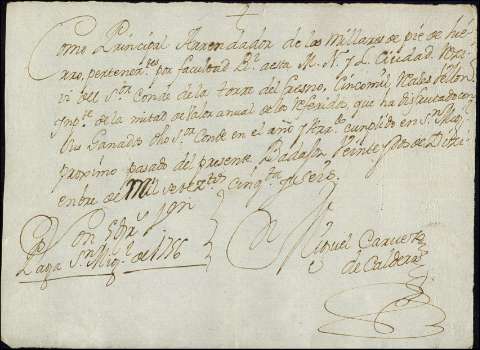 Como Principal Arrendador de los Millares de pie de hie
rro, pertenezt.es por facultad Rl. a esta M. N. y L. Ciudad, Reci
vi del S.or Conde de la torre del fresno, Cinco mil Reales de Vlon
Imp.te de la mitad de Valor anual de los Referidos, que ha disfrutado con
sus Ganados dho S.or Conde en el año y cumplido en S.n Mig.l
proximo pasado del presente Badajoz Veinte y dos de Dizi
embre de Mil setez.tos cinq.ta y seis.
Son 5 R.s V.n
Paga S.n Mig.l de 1756
Miguel
de Caldera